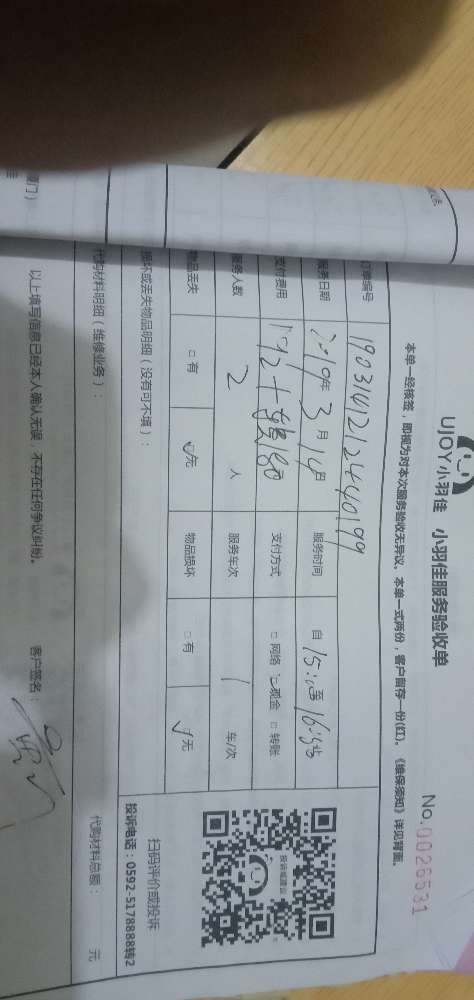 UJOY小羽佳 小羽佳服务验收单
No.0026531
本单一经核签，即视为对本次服务验收无异议。本单一式两份，客户留存一份(红)。《维保须知》详见背面。
订单编号
服务日期 2019年 3月 14日 服务时间 自 15: 至 16:
支付费用 支付方式 □网络 ☑现金 □转账
服务人数 2 人 服务车次 1 车/次
物品丢失 □有 ☑无 物品损坏 □有 ☑无
损坏或丢失物品明细（没有可不填）：
扫码评价或投诉
投诉电话：0592-5178888转2
代购材料明细（维修业务）：
代购材料总额： 元
以上填写信息已经本人确认无误，不存在任何争议纠纷。 客户签名：